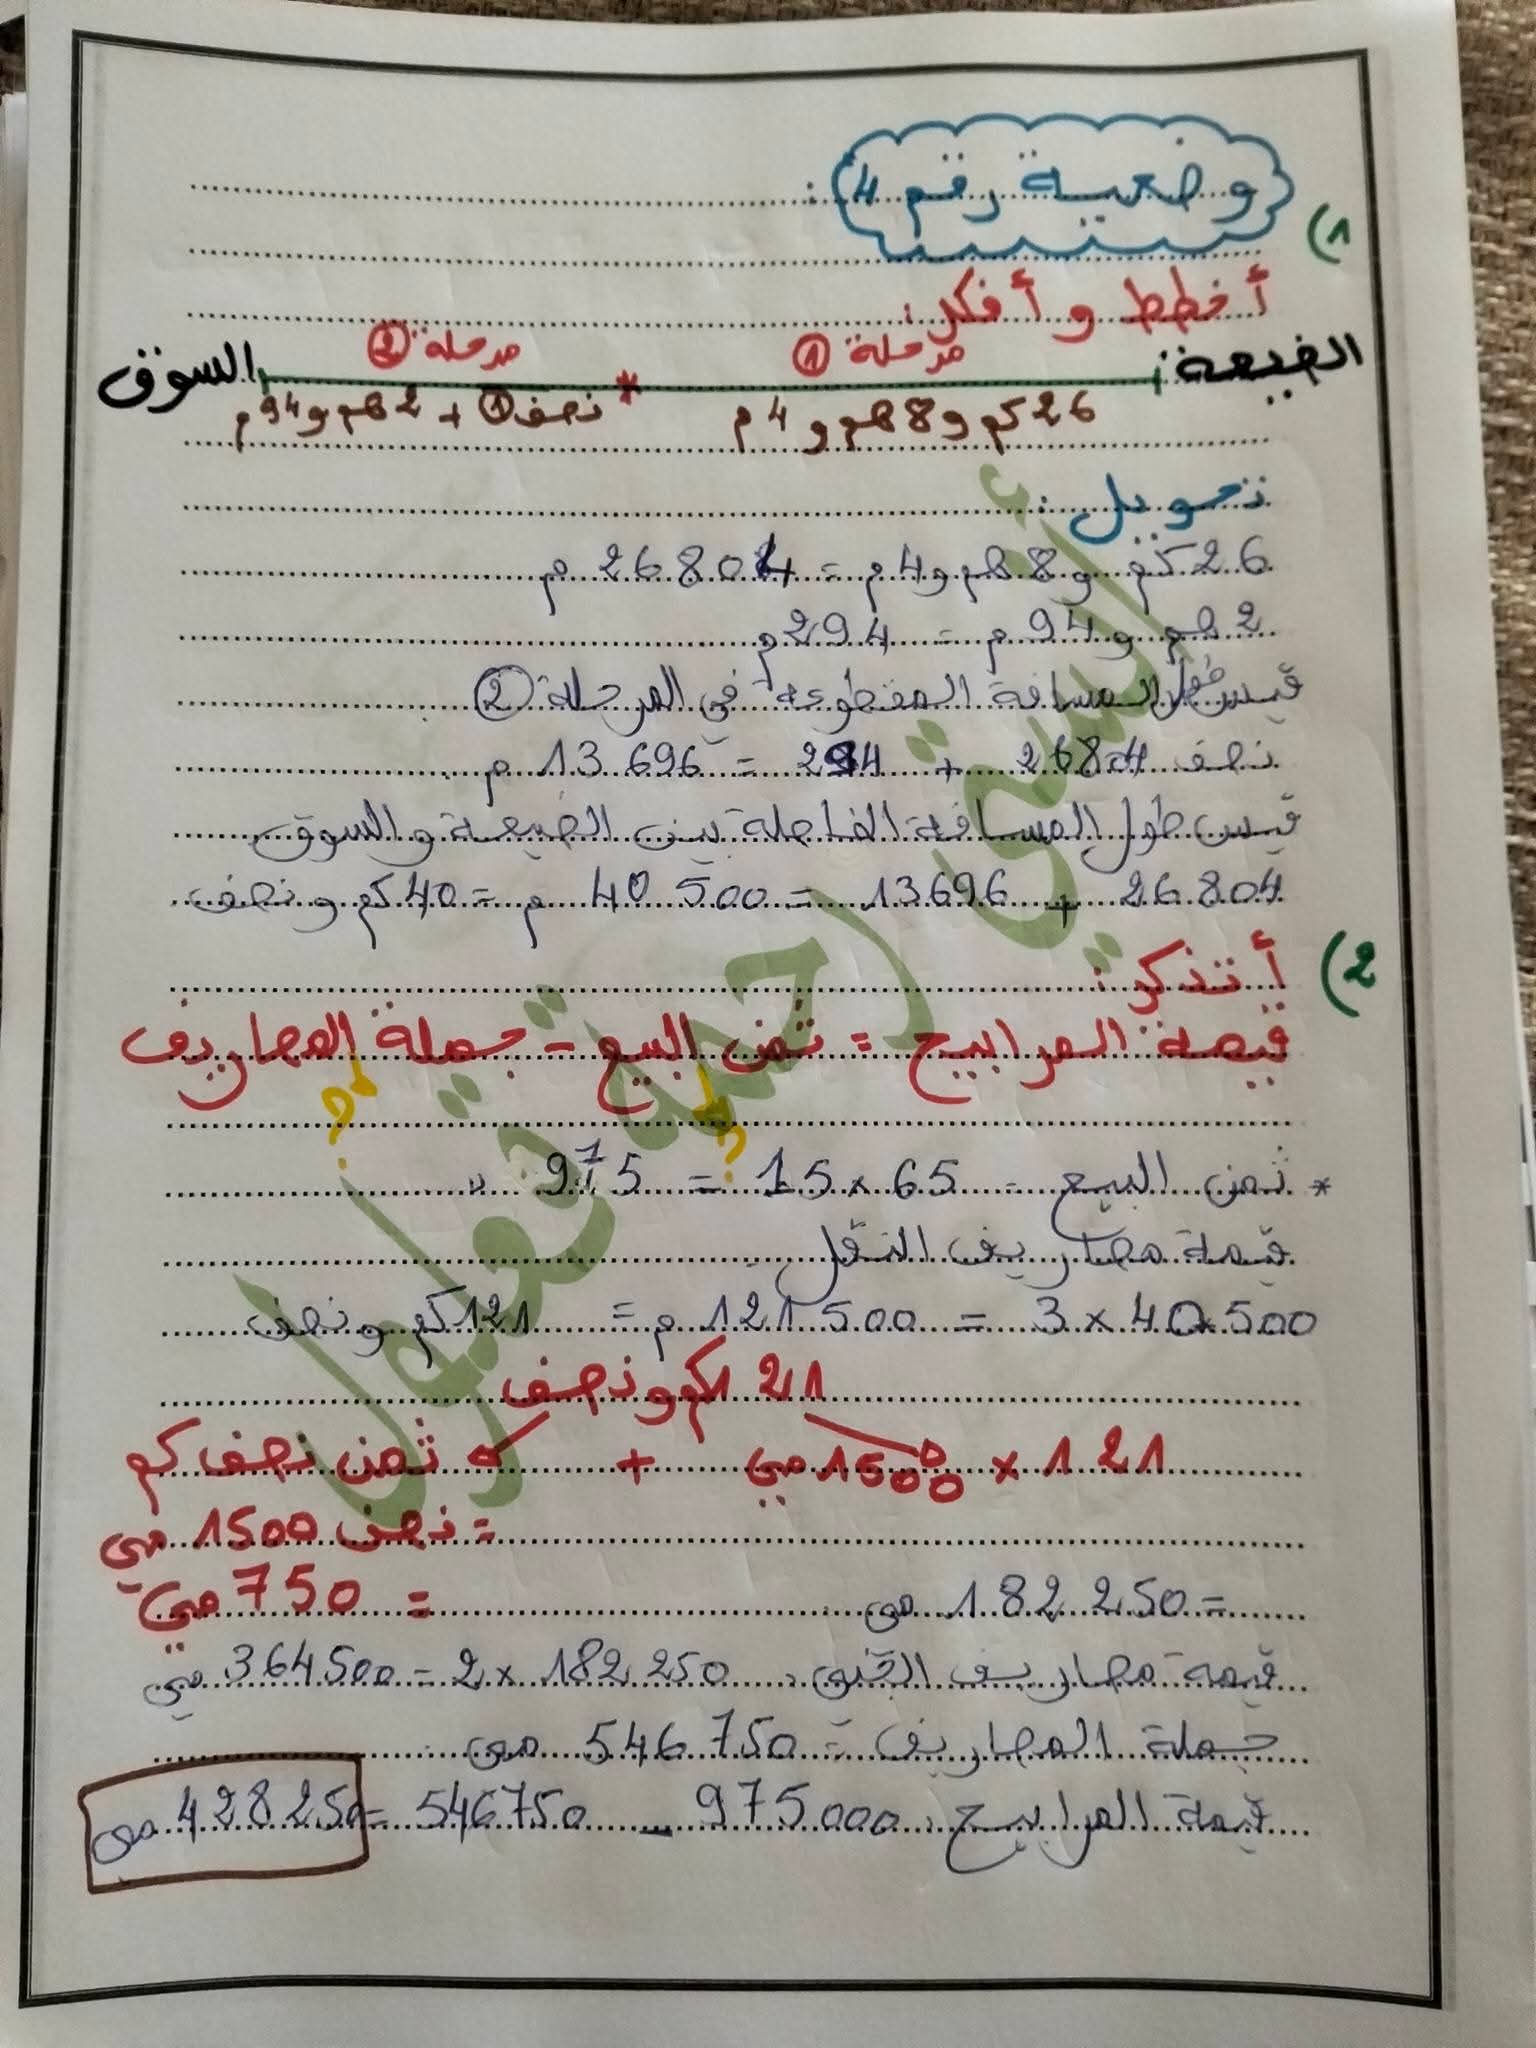 وضعية رقم 4 :
1)
أخطط و أفكر :
مرحلة ① مرحلة ②
الضيعة السوق
26 كم و 8 هم و 4 م * نصف ① + 2 هم و 94 م
تحويل :
26 كم و 8 هم و 4 م = 26804 م
2 هم و 94 م = 294 م
قيس طول المسافة المقطوعة في المرحلة ②
نصف 26804 + 294 = 13696 م
قيس طول المسافة الفاصلة بين الضيعة والسوق
26804 + 13696 = 40500 م = 40 كم و نصف
2) أتذكر :
قيمة المرابيح = ثمن البيع - جملة المصاريف
؟ ؟
* ثمن البيع = 65 × 15 = 975 د
قيمة مصاريف النقل
40500 × 3 = 121500 م = 121 كم و نصف
121 كم و نصف
121 × 1500 مي + ثمن نصف كم
= نصف 1500 مي
= 182250 مي = 750 مي
قيمة مصاريف الجني : 182250 × 2 = 364500 مي
جملة المصاريف = 546750 مي
قيمة المرابيح : 975000 - 546750 = 428250 مي
أنستي رحمة قطول